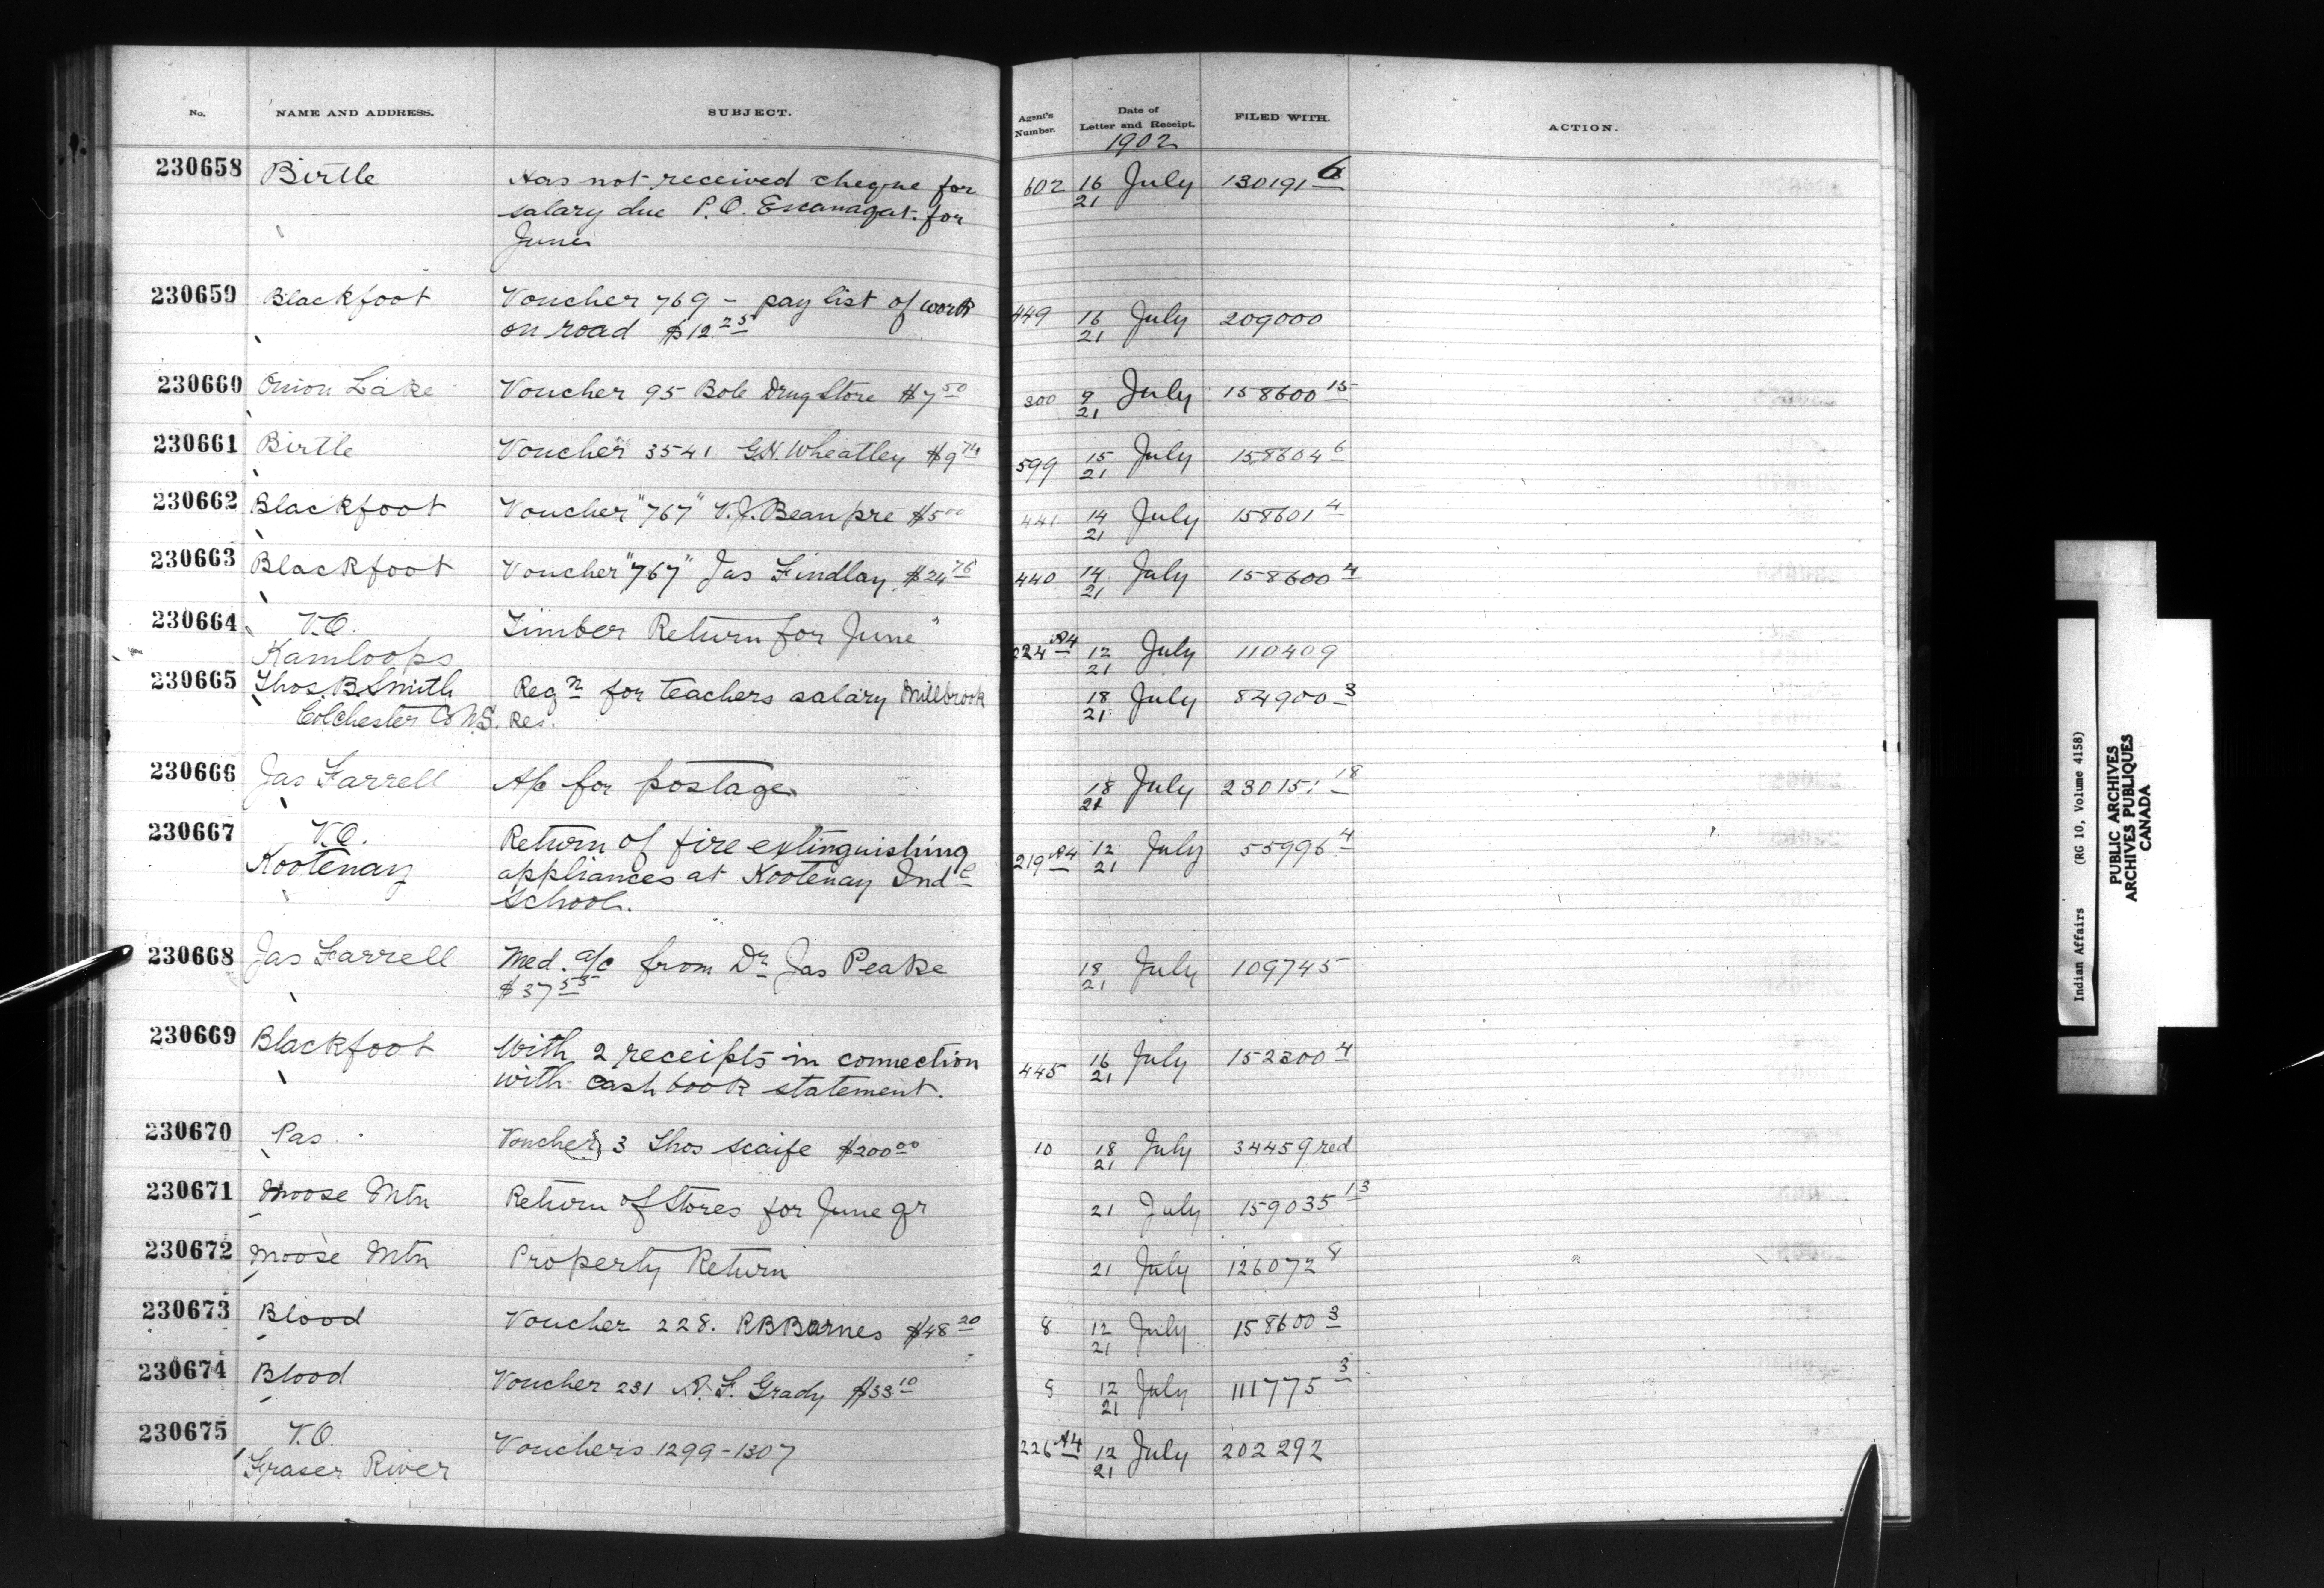 No. NAME AND ADDRESS. SUBJECT. Agent's Number. Date of Letter and Receipt. FILED WITH. ACTION.
1902
230658 Birtle Has not received cheque for 602 16 July 130191 6
salary due P.O. for 21
June
230659 Blackfoot Voucher 769 - pay list of work 449 16 July 209000
on road $12 25 21
230660 Onion Lake Voucher 95 Bole Drug Store $7 50 300 9 July 158600 15
21
230661 Birtle Voucher 3541 G.H. Wheatley $9 74 599 15 July 158604 6
21
230662 Blackfoot Voucher "767" V.J. Beaupre $5 00 441 14 July 158601 4
21
230663 Blackfoot Voucher "767" Jas Findlay $24 76 440 14 July 158600 4
21
230664 V.O. Timber Return for June"
Kamloops 224 A4 12 July 110409
21
230665 Thos. B Smith Reqn for teachers salary Millbrook 18 July 84900 3
Colchester Co N.S. Res. 21
230666 Jas Farrell A/c for postage 18 July 230151 18
21
230667 V.O. Return of fire extinguishing 219 A4 12 July 55996 4
Kootenay appliances at Kootenay Indl 21
School.
230668 Jas Farrell Med. a/c from Dr Jas Peake 18 July 109745
$37 55 21
230669 Blackfoot With 2 receipts in connection 445 16 July 152300 4
with cash book statement. 21
230670 Pas Voucher(s) 3 Thos Scaife $200 00 10 18 July 34459 red
21
230671 Moose Mtn Return of Stores for June qr 21 July 159035 13
230672 Moose Mtn Property Return 21 July 126072 8
230673 Blood Voucher 228. R B Barnes $48 20 8 12 July 158600 3
21
230674 Blood Voucher 231 A. F. Grady $33 10 8 12 July 111775 3
21
230675 V.O. Vouchers 1299-1307 226 A4 12 July 202292
Fraser River 21
Indian Affairs (RG 10, Volume 4158)
PUBLIC ARCHIVES
ARCHIVES PUBLIQUES
CANADA